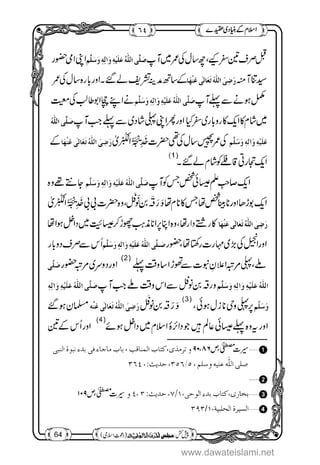 اسلام کے بنیادی عقیدے ٦٤
صرف قبل تین سفر کیے، چھ سال کی عمر میں آپ صَلَّی اللہُ تَعَالٰی عَلَیْہِ وَاٰلِہٖ وَسَلَّم حضور اپنی امی
سیدتنا آمنہ رَضِیَ اللہُ تَعَالٰی عَنْہَا کے ساتھ مدینہ تشریف لے گئے۔ اور بارہ سال کی عمر
مکمل ہونے سے پہلے آپ صَلَّی اللہُ تَعَالٰی عَلَیْہِ وَاٰلِہٖ وَسَلَّم نے اپنے چچا ابوطالب کی معیت
میں شام کا ایک کاروباری سفر کیا اور پھر اپنی شادی سے پہلے جب آپ صَلَّی اللہُ تَعَالٰی
عَلَیْہِ وَاٰلِہٖ وَسَلَّم کی عمر پچیس سال کی تھی حضرت خدیجۃ الکبریٰ رَضِیَ اللہُ تَعَالٰی عَنْہَا کے
ایک تجارتی قافلے کو شام لے گئے۔ (1)
ایک صاحب علم عیسائی شخص آپ کو صَلَّی اللہُ تَعَالٰی عَلَیْہِ وَاٰلِہٖ وَسَلَّم جانتے تھے وہ
ایک بوڑھا نابینا شخص تھا جس کا نام وَرَقَہ بن نَوفَل تھا، وہ حضرت بی بی خدیجۃ الکبریٰ
رَضِیَ اللہُ تَعَالٰی عَنْہَا کا رشتے دار تھا، وہ اپنا پرانا مذہب چھوڑ کر عیسائیت میں داخل ہوا تھا
اور انجیل کی بڑی مہارت رکھتا تھا، حضور صَلَّی اللہُ تَعَالٰی عَلَیْہِ وَاٰلِہٖ وَسَلَّم اُس سے صرف دو بار
ملے، پہلی مرتبہ اعلان نبوت سے تھوڑا سا وقت پہلے (2) اور دوسری مرتبہ حضور صَلَّی
اللہُ تَعَالٰی عَلَیْہِ وَاٰلِہٖ وَسَلَّم ورقہ بن نوفل سے اس وقت ملے جب آپ صَلَّی اللہُ تَعَالٰی عَلَیْہِ وَاٰلِہٖ
وَسَلَّم پر پہلی وحی نازل ہوئی، (3) وَرَقَہ بن نَوفَل رَضِیَ اللہُ تَعَالٰی عَنْہ مسلمان ہو گئے
اور یہ وہ پہلے عیسائی عالم ہیں جو دائرۂ اسلام میں داخل ہوئے (4) اور اُس کے تین
1 ......سیرت مصطفیٰ، ص ٨٦، ٩٠ و ترمذی، کتاب المناقب ، باب ماجاء فی بدء نبوة النبی
صلی اللہ علیہ وسلم ، ٥/ ٣٥٦ ، حدیث: ٣٦٤٠
2 ......
3 ......بخاری، کتاب بدء الوحی، ١/ ٧ ، حدیث: ٣ ٤٠ و سیرت مصطفیٰ، ص ١٠٩
4 ......السیرة الحلبیة، ١/ ٣٩٣
64 پیش کش: مجلس المدینۃ العلمیۃ (دعوت اسلامی)
www.dawateislami.net